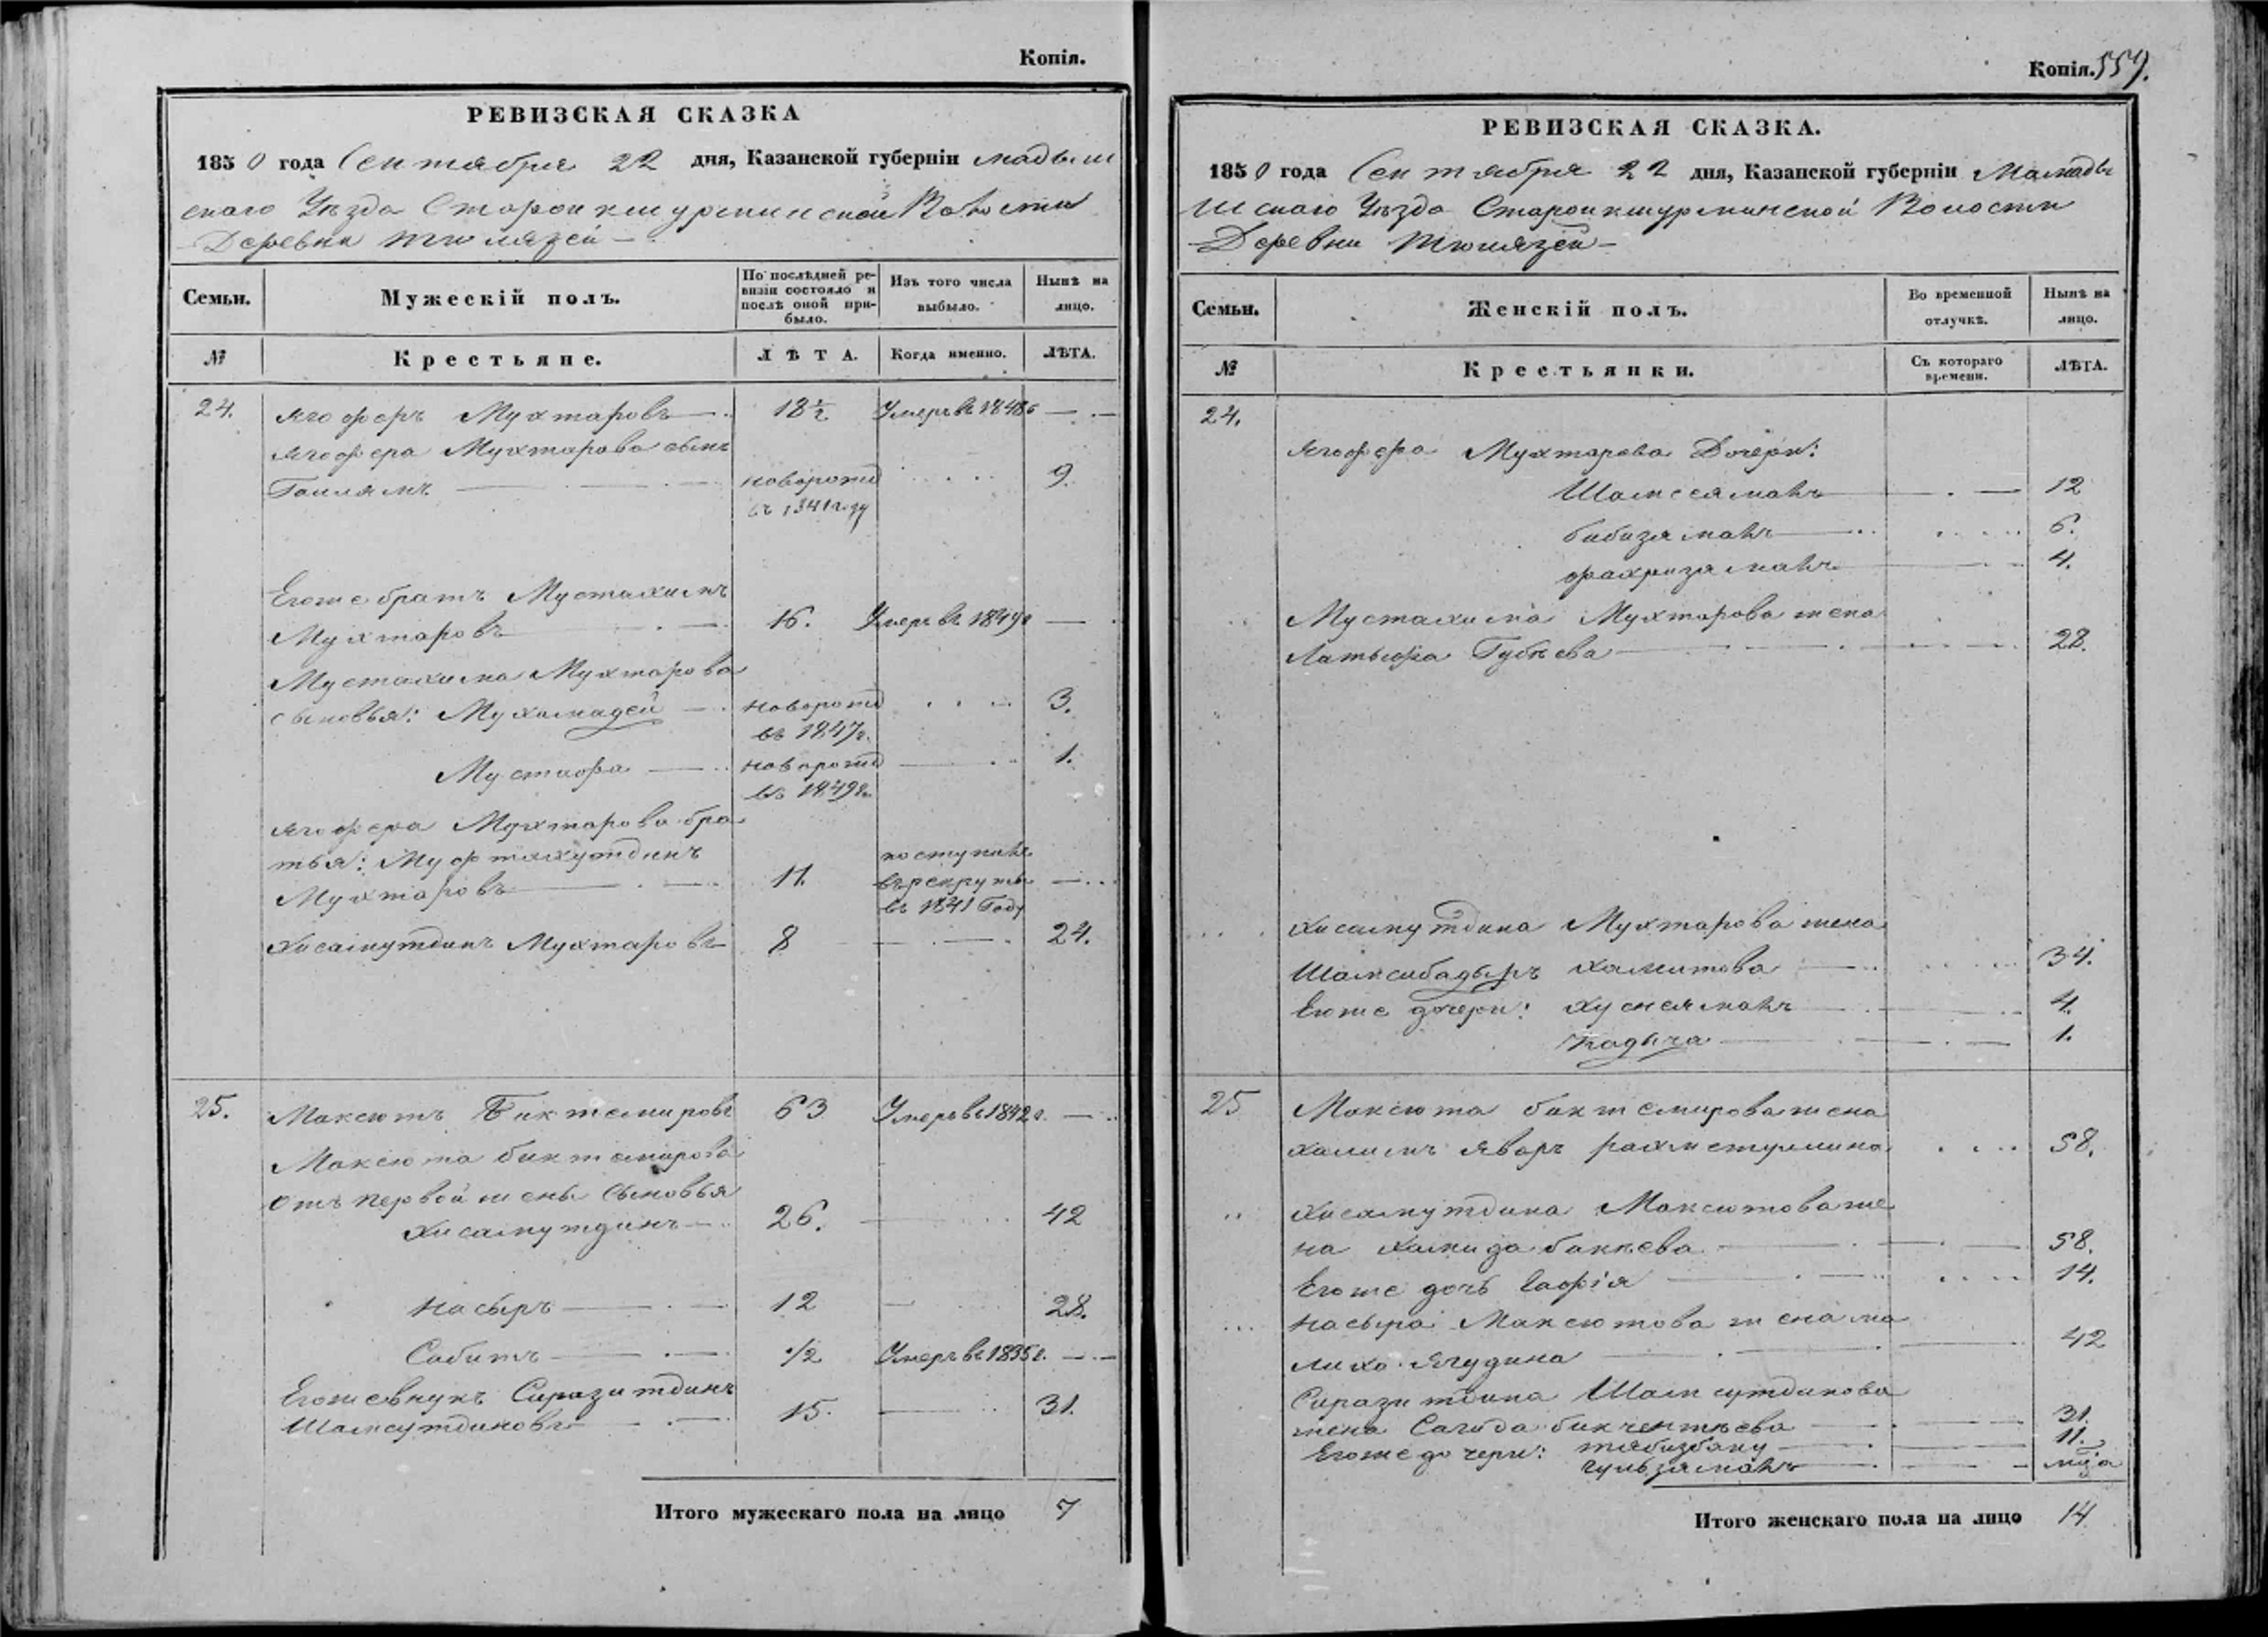 Копія.
РЕВИЗСКАЯ СКАЗКА
1850 года Сентября 22 дня, Казанской губерніи мадыш
скаго Уѣзда Волости
Деревни Тюлязей
Семьи.
Мужескій полъ.
По послѣдней ре-
визіи состояло и
послѣ оной при-
было.
Изъ того числа
выбыло.
Нынѣ на
лицо.
№
Крестьяне.
ЛѢТА.
Когда именно.
ЛѢТА.
24. Ягоферъ Мухтаровъ 18½ Умеръ въ 1848г
Ягофера Мухтарова сынъ
Галлямъ новорожд 9.
въ 1841 году
Егоже братъ Мустахимъ
Мухтаровъ 16. Умеръ въ 1849г
Мустахима Мухтарова
сыновья: Мухамадей новорожд 3.
въ 1847г.
Мустафа новорожд 1.
въ 1849г.
Ягофера Мухтарова бра
тья: Муфтахутдинъ поступилъ
Мухтаровъ 11. въ рекруты
въ 1841 Году
Хисамутдинъ Мухтаровъ 8 24.
25. Максютъ Биктемировъ 63 Умеръ въ 1842г.
Максюта биктемирова
отъ первой жены Сыновья
Хисамутдинъ 26. 42
Насыръ 12 28.
Сабитъ ½ Умеръ въ 1835г.
Егоже внукъ Сиразитдинъ
Шамсутдиновъ 15. 31.
Итого мужескаго пола на лицо 7
Копія. 559.
РЕВИЗСКАЯ СКАЗКА.
1850 года Сентября 22 дня, Казанской губерніи Мамады
шскаго Уѣзда Волости
Деревни Тюлязей
Семьи.
Женскій полъ.
Во временной
отлучкѣ.
Нынѣ на
лицо.
№
Крестьянки.
Съ котораго
времени.
ЛѢТА.
24.
Ягофера Мухтарова Дочери:
Шамсямалъ 12
бибизямалъ 6.
фахризямалъ 4.
Мустахима Мухтарова жена
Латыфа Губѣева 28.
Хисамутдина Мухтарова жена
Шамсибадыръ Хамитова 34.
Егоже дочери: Хуснямалъ 4.
Кадыча 1.
25 Максюта биктемирова жена
Халимъ яваръ 58.
Хисамутдина Максютова же
на Хамида баккева 58.
Егоже дочь Сафія 14.
Насыра Максютова жена ма
лиха Ягудина 42
Сиразитдина Шамсутдинова
жена Сагида бикчентѣева 31.
Егоже дочери: тябизбяну 11.
гульзямалъ
Итого женскаго пола на лицо 14